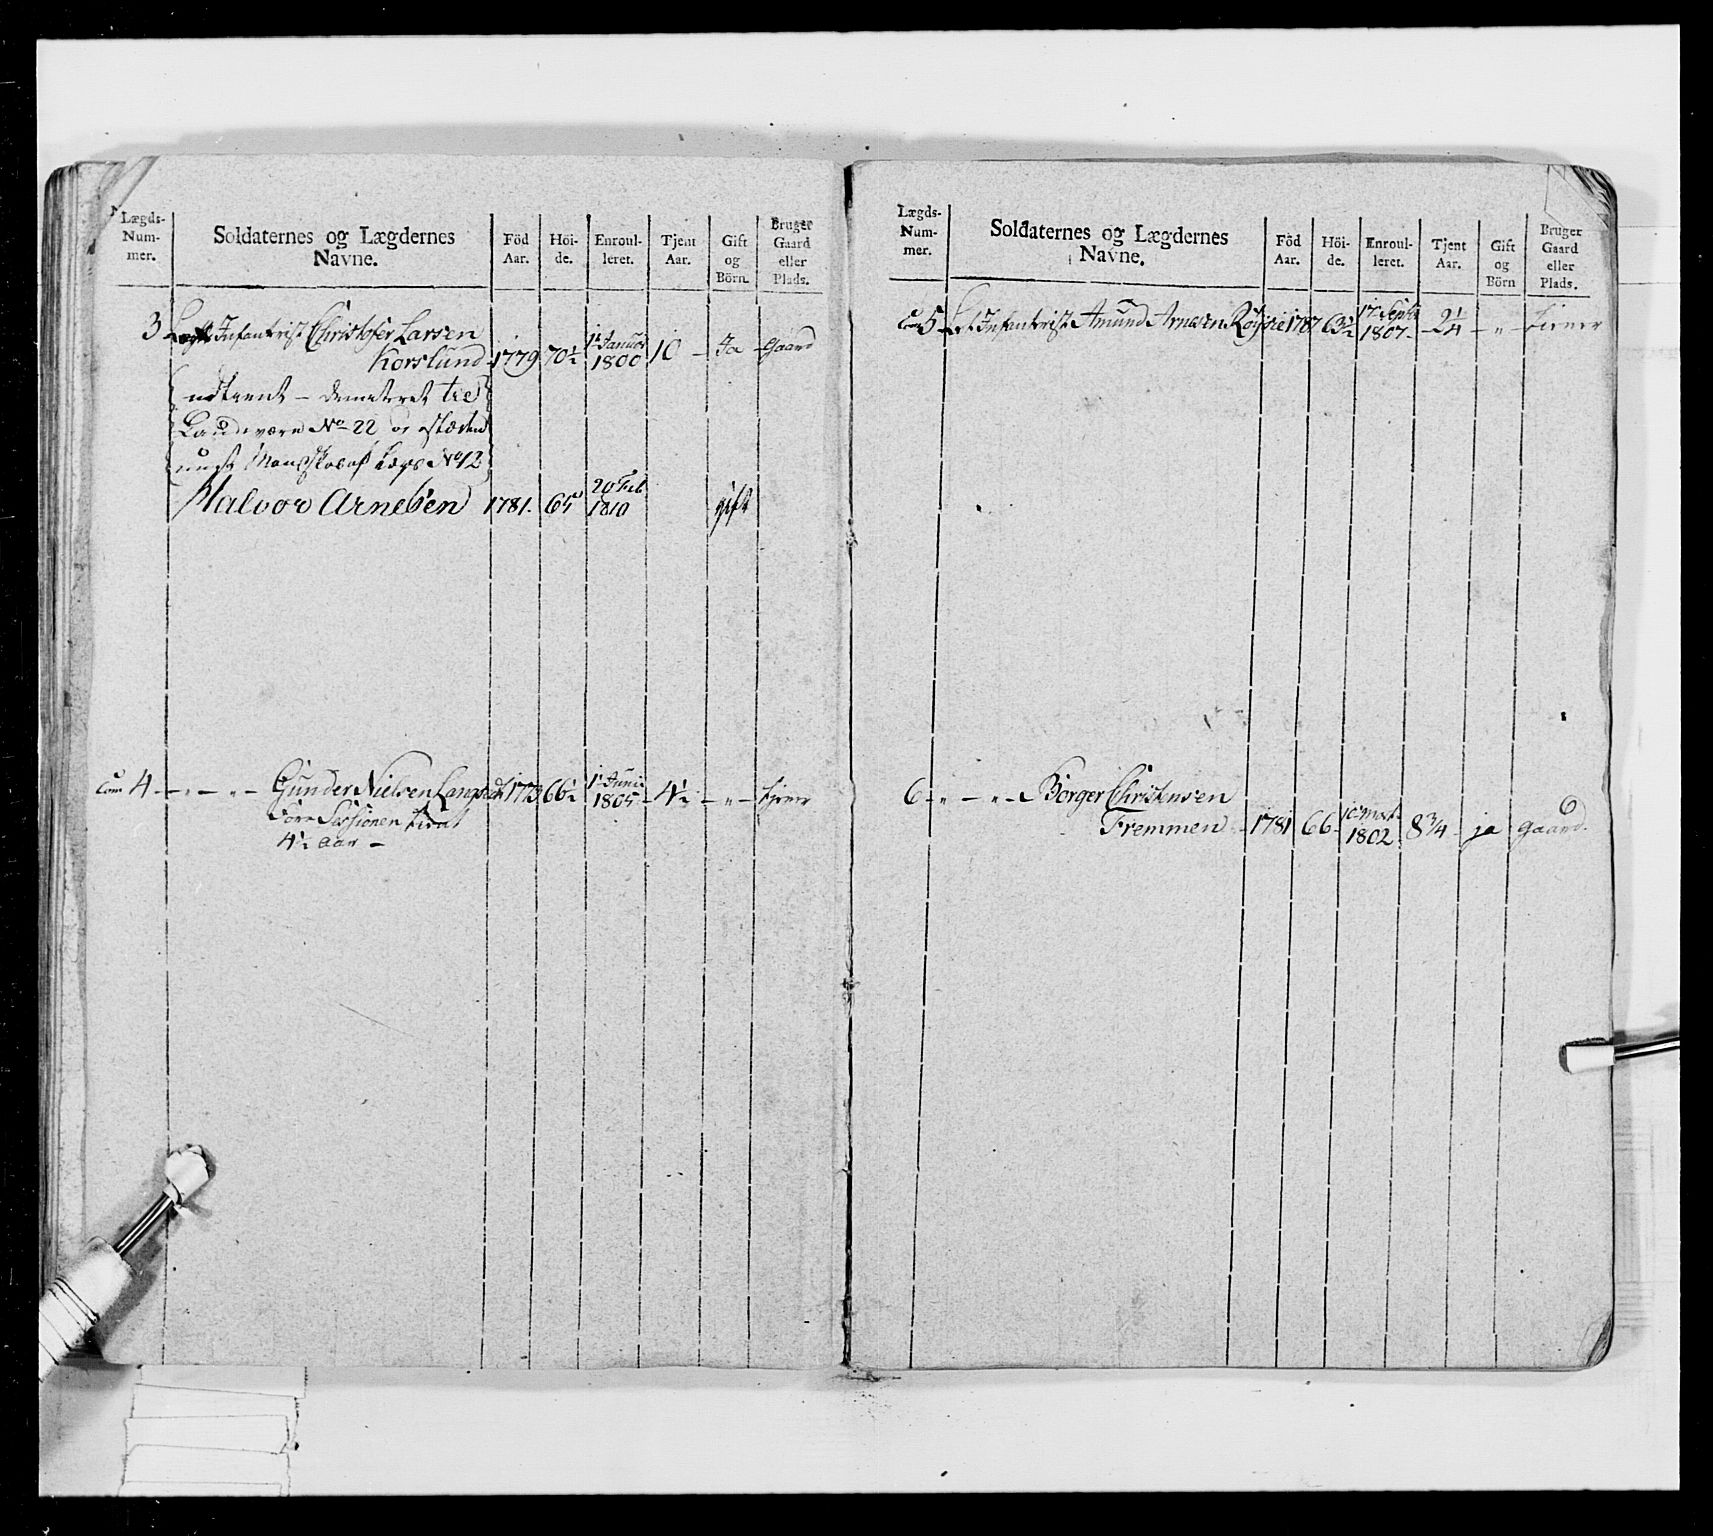 Lægds-
Num-
mer.
Soldaternes og Lægdernes
Navne.
Föd
Aar.
Höi-
de.
Enroul-
leret.
Tjent
Aar.
Gift
og
Börn.
Bruger
Gaard
eller
Plads.
3 Infanterist Christofer Larsen
Korslund 1779 70½ 1 Januar 1800 10 - Ja Gaard
udtient -
Landeværn No 22 og
Mandskabs No 12
Halvor Arnesen 1781. 65 20 Feb 1810 gift
4 - „ - „ - Gunder Nielsen 66½ 1 Junii 1805 - 4½ - „ - tiener
för Sessionen tient
4½ aar -
Lægds-
Num-
mer.
Soldaternes og Lægdernes
Navne.
Föd
Aar.
Höi-
de.
Enroul-
leret.
Tjent
Aar.
Gift
og
Börn
Bruger
Gaard
eller
Plads.
5 Infanterist Amund Arnesen 1787 63½ 17 Septb 1807 - 2¼ - „ - tiener
6 - „ - „ - Börger Christensen
Fremmen - 1781 66 - 1802 8¾ - ja gaard.
6